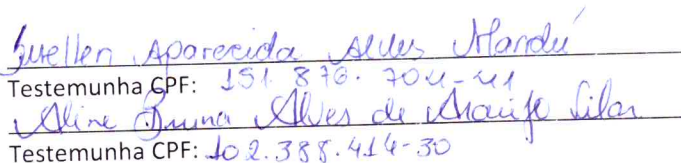 Suellen Aparecida Alves Mandú
Testemunha CPF: 151.876.704-41
Aline Bruna Alves de Araujo Silva
Testemunha CPF: 102.388.414-30